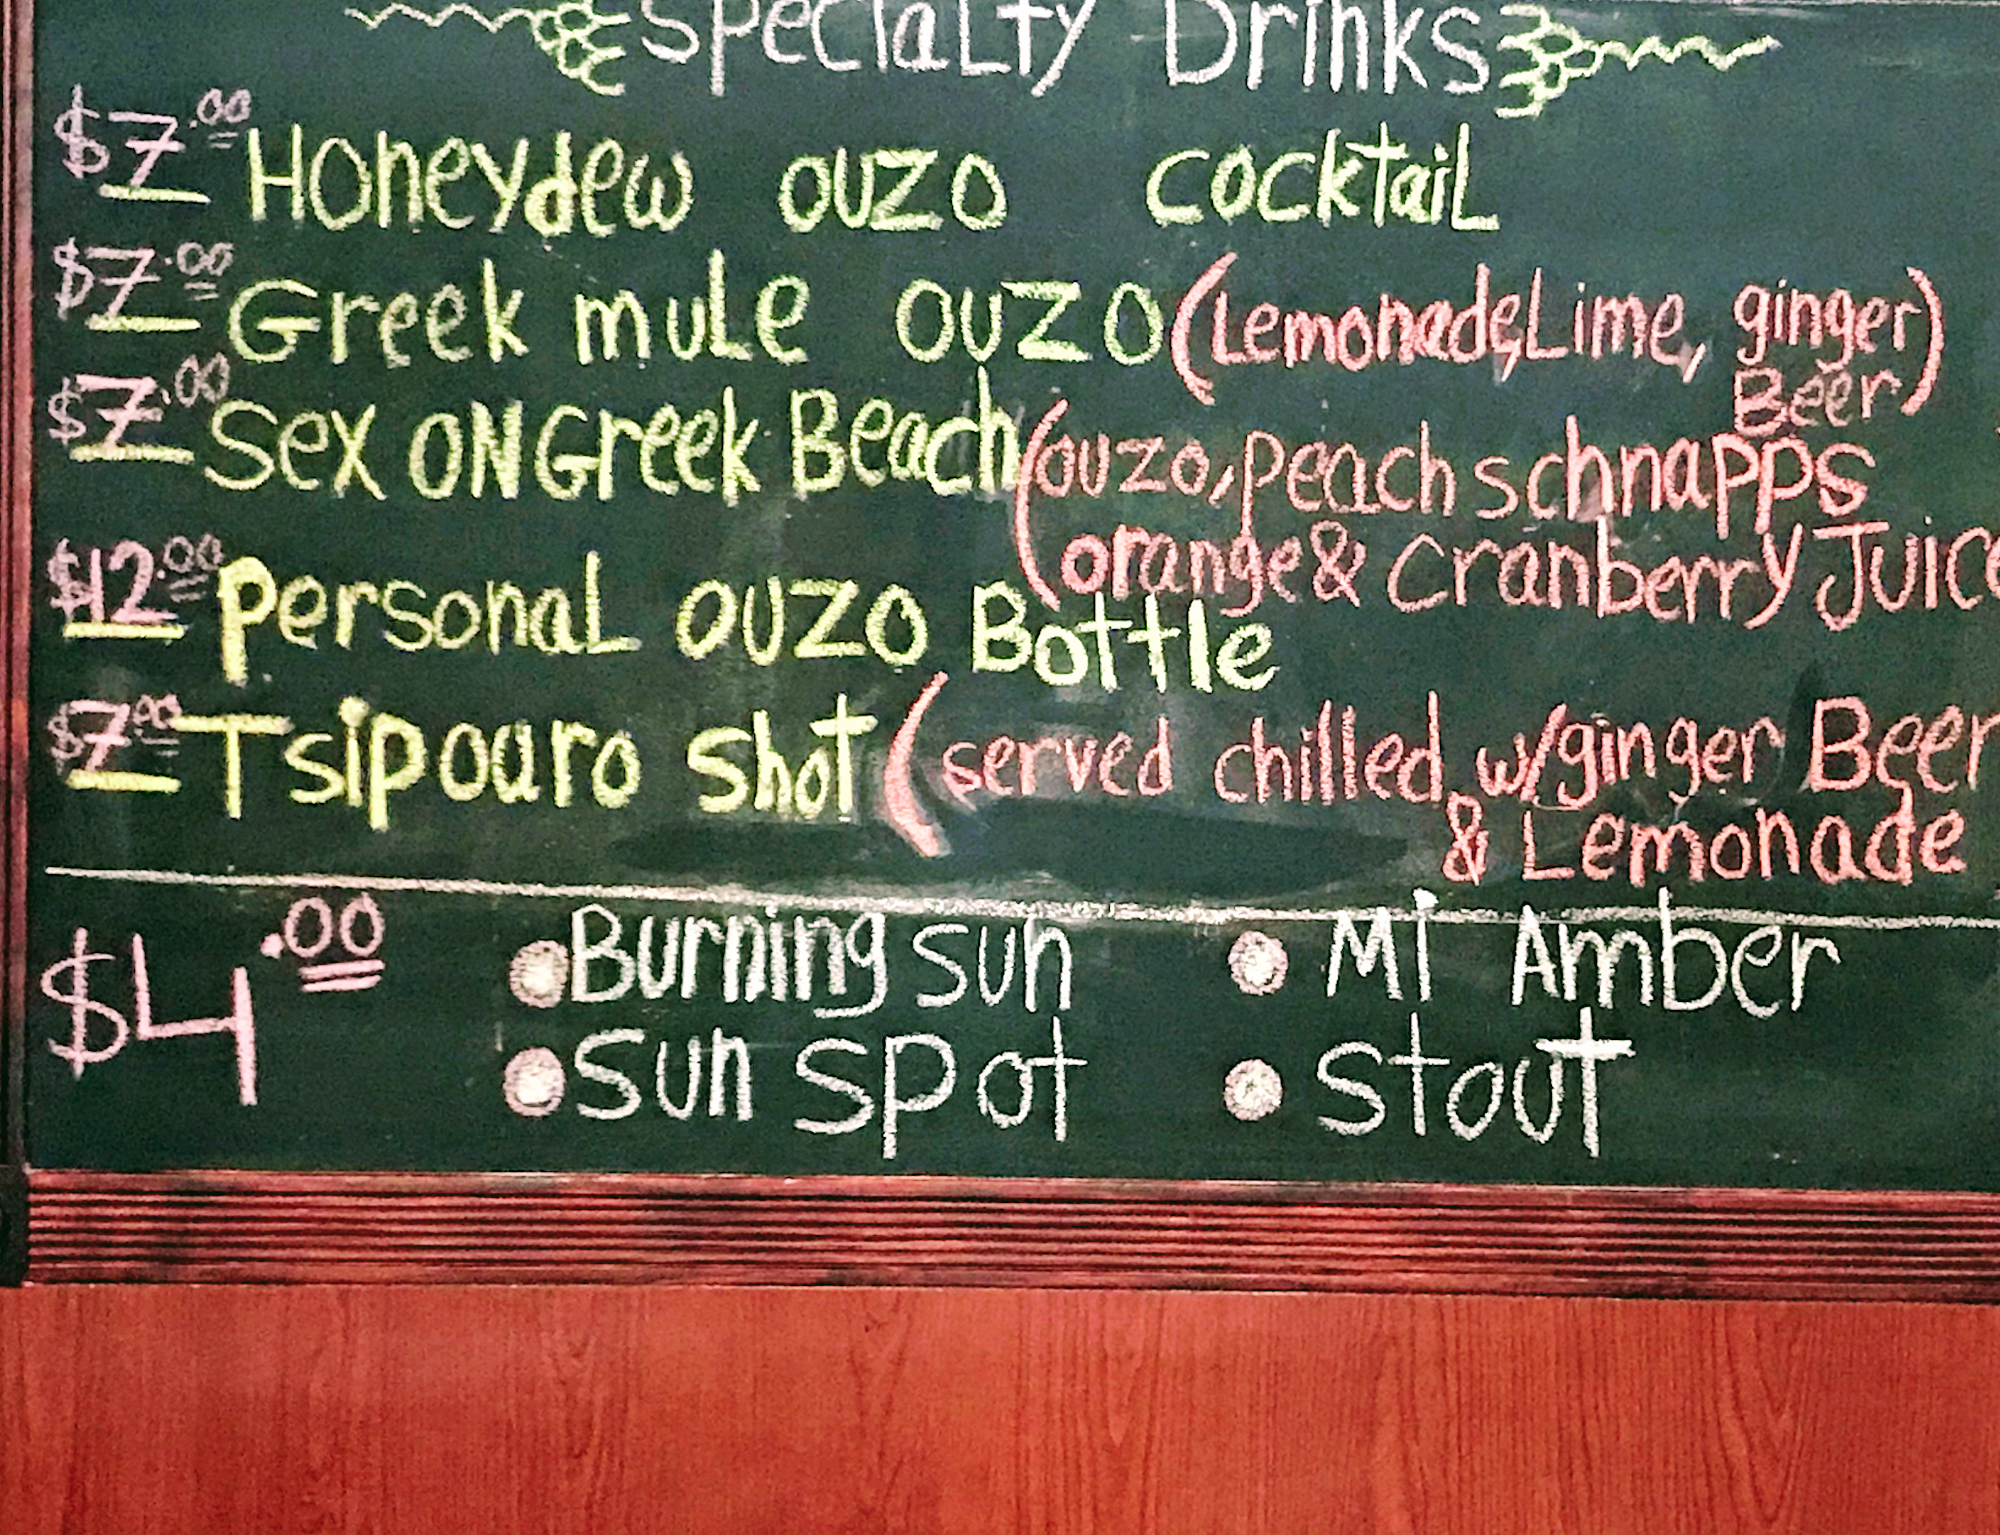 Specialty Drinks
$7.00 Honeydew ouzo cocktail
$7.00 Greek mule ouzo (Lemonade, Lime, ginger
Beer)
$7.00 Sex on Greek Beach (ouzo, peach schnapps
orange & cranberry Juice
$12.00 Personal ouzo Bottle
$7.00 Tsipouro shot (served chilled w/ginger Beer
& Lemonade
$4.00 • Burning sun • Mi Amber
• Sun spot • stout